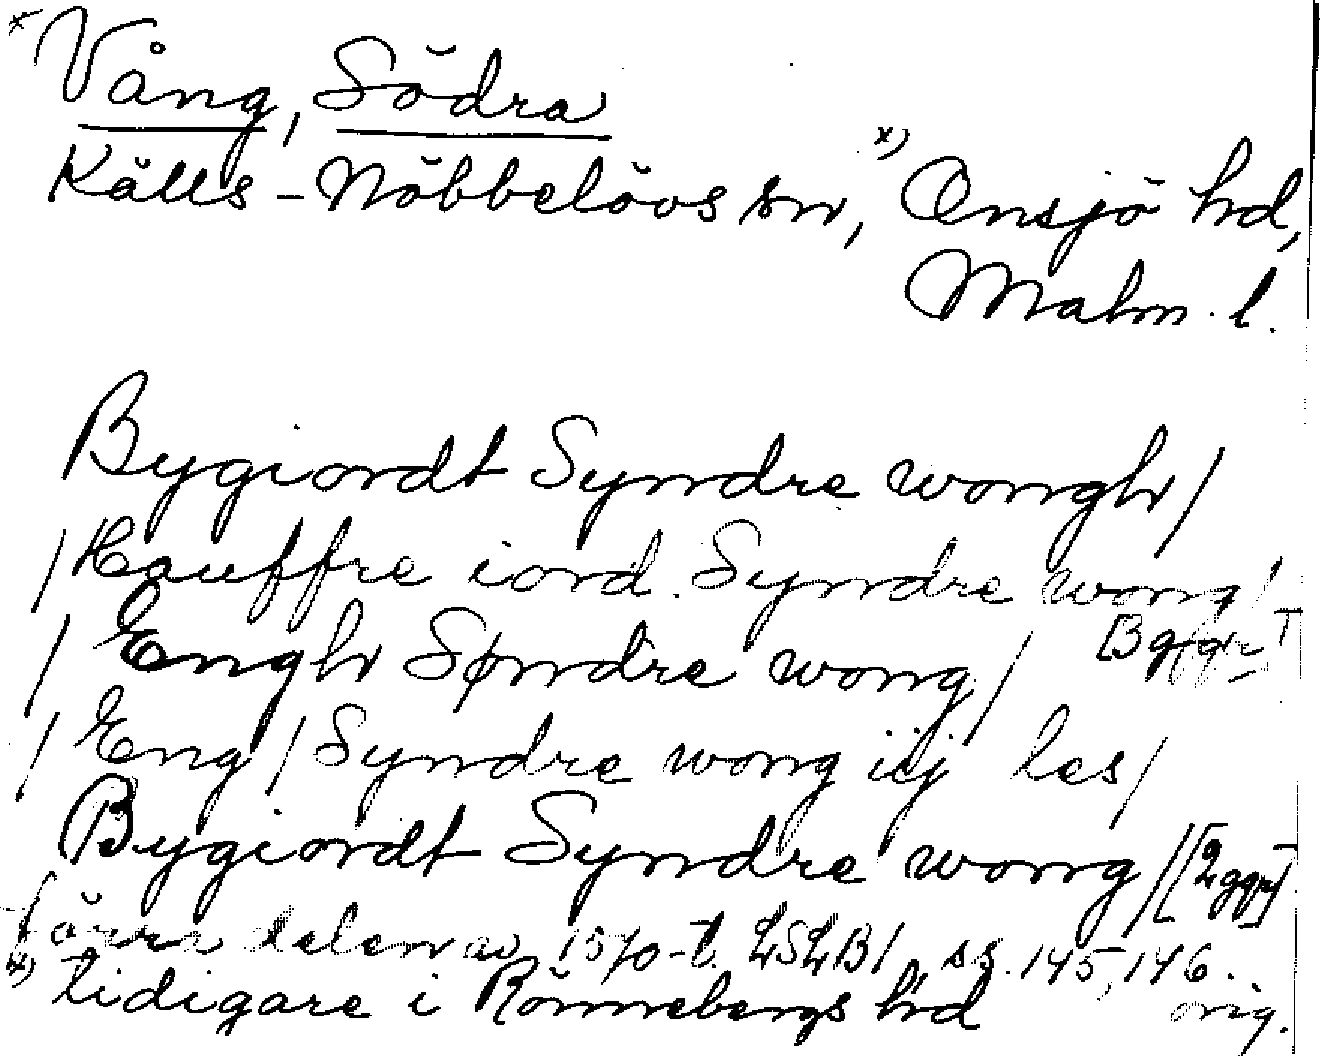 x Vång, Södra
Källs-Nöbbelövs sn, x) Onsjö hd,
Malm. l.
Bygiordt Syndre wongh/
/Hauffre iord Syndre wong/
/Engh Søndre wong/ [Bgfgr]
/Eng/Syndre wong iij les/
Bygiordt Syndre wong/[2 ggr]
förra delen av 1570-t. LSLB1 ss. 145, 146.
x) tidigare i Rönnebergs hd orig.